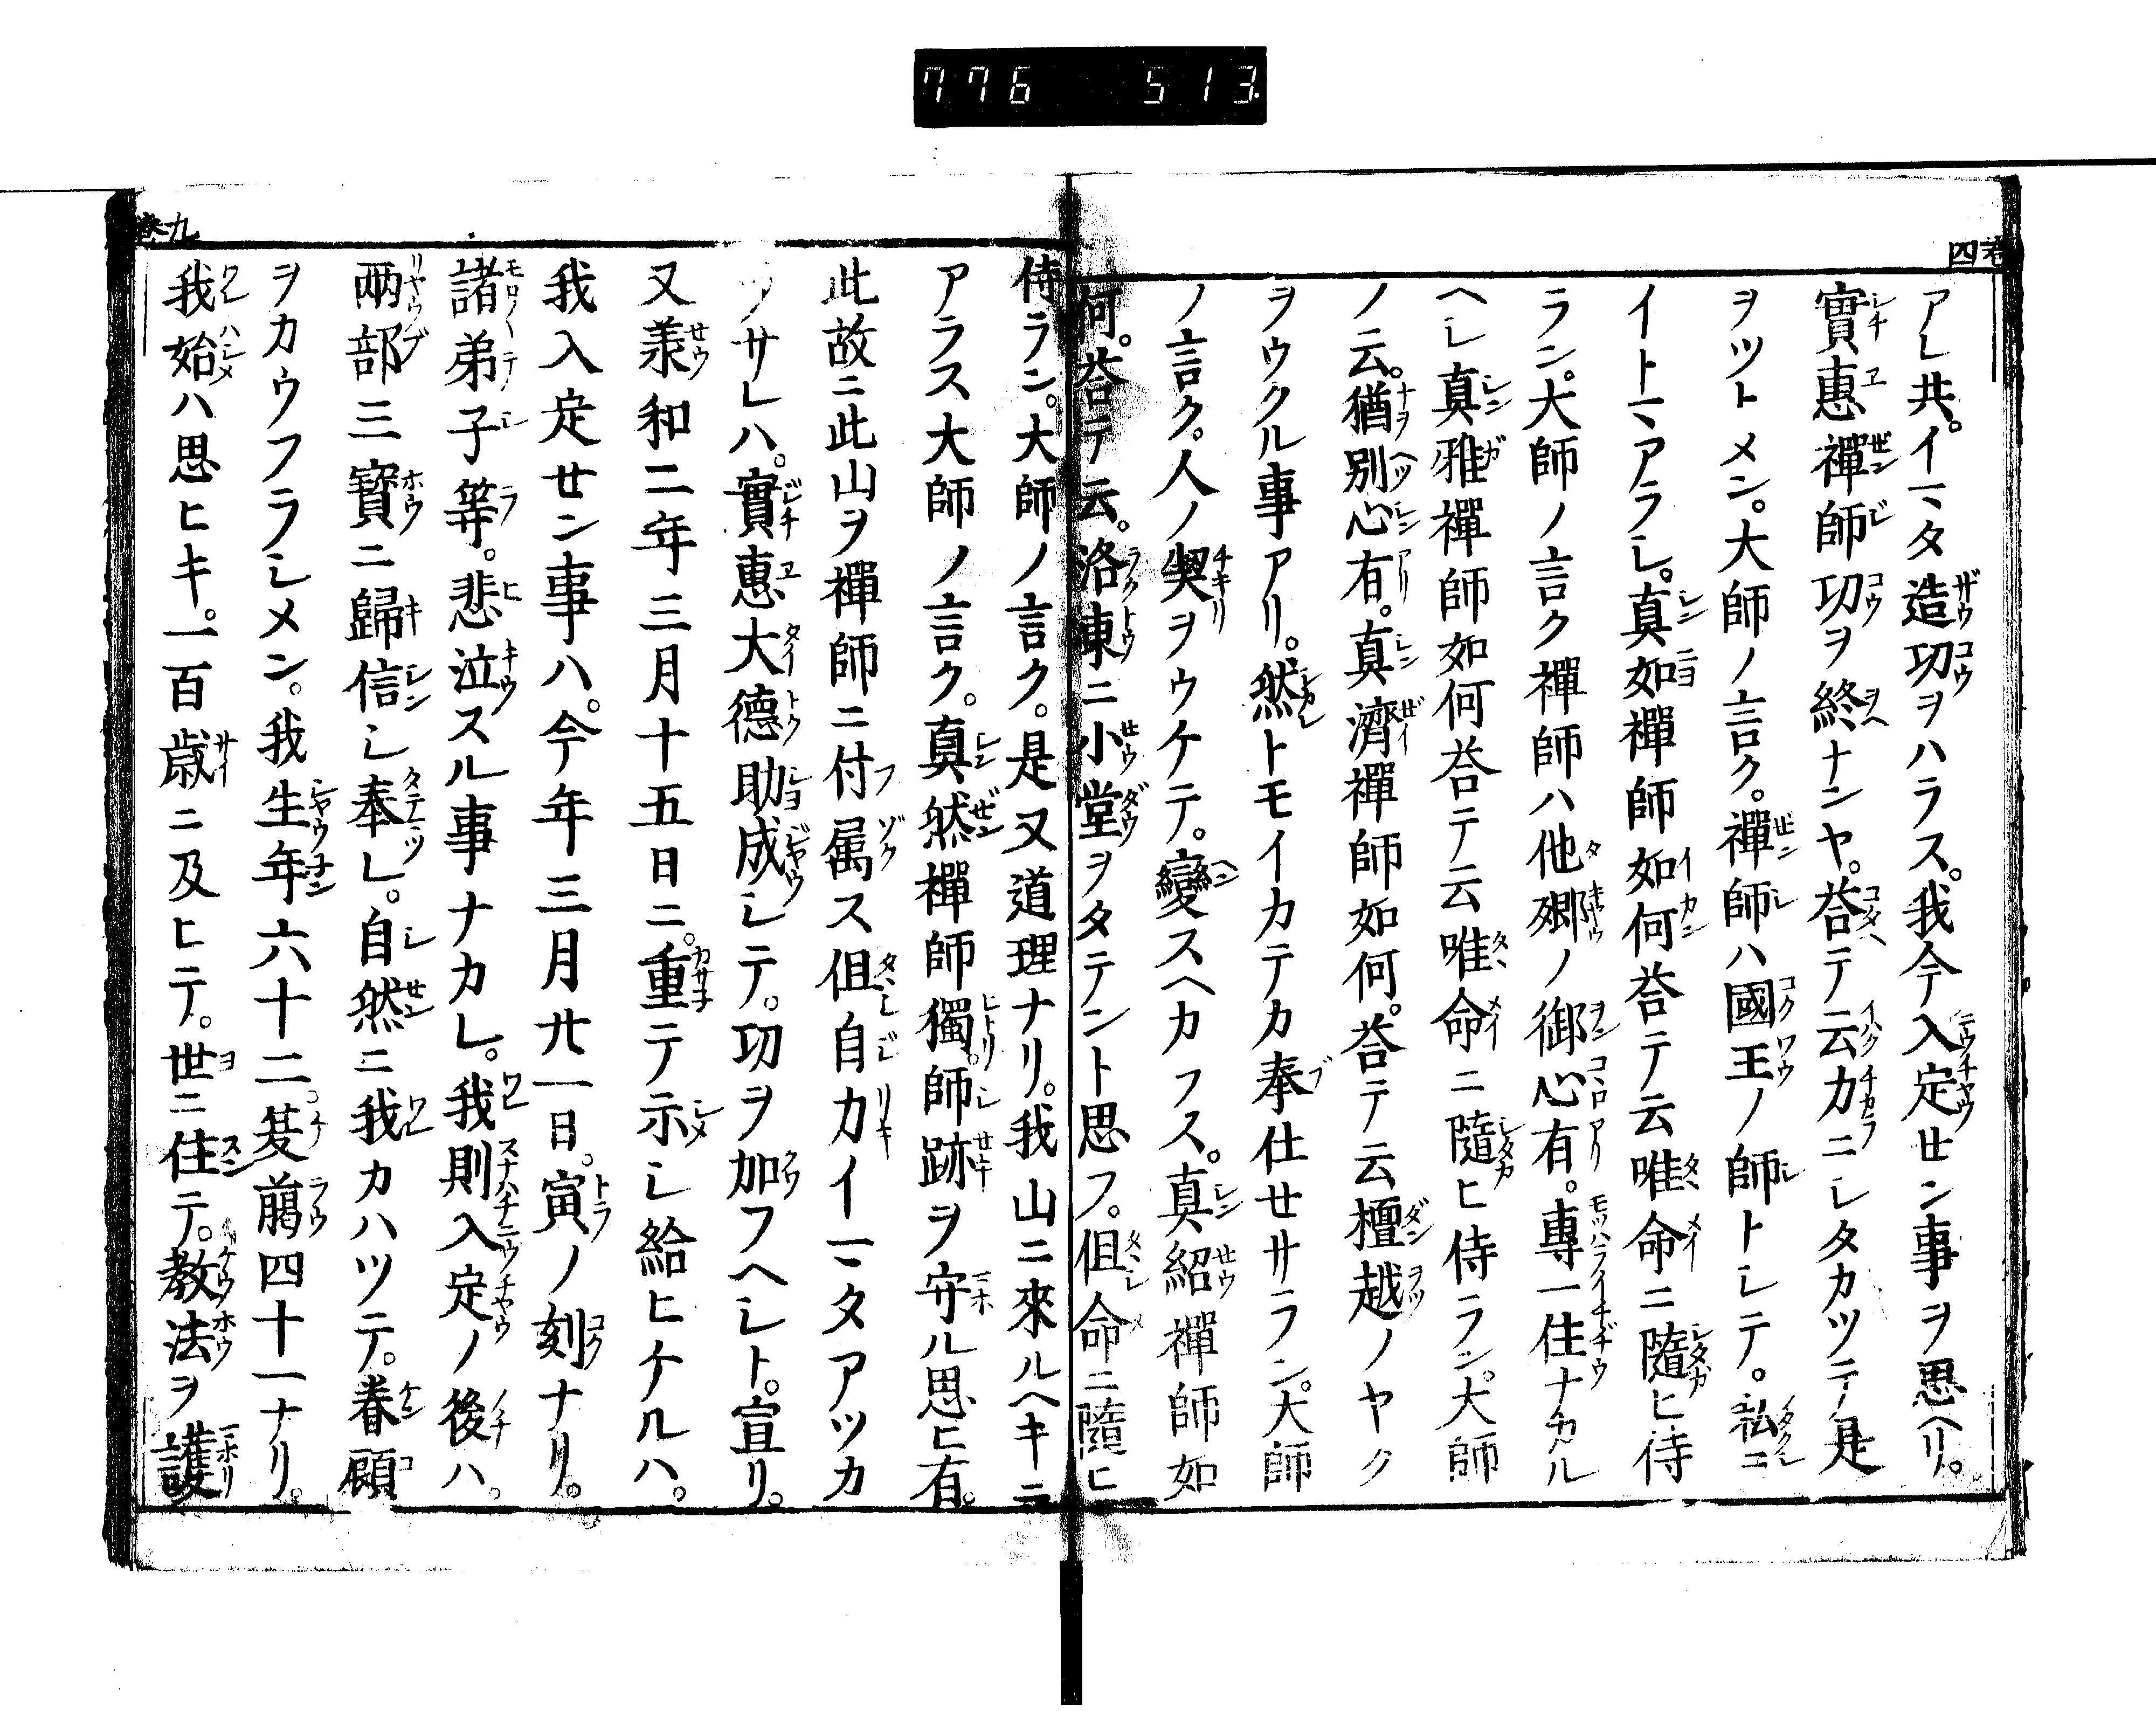 776 513
四 巻
アレ共。イマタ造功ヲハラス。我今入定せン事ヲ思ヘリ。
實惠禪師功ヲ終ナンヤ。荅テ云力ニレタカツテ是
ヲツトメン。大師ノ言ク。禪師ハ國王ノ師トレテ。私ニ
イトマアラレ。真如禪師如何荅テ云唯命ニ隨ヒ侍
ラン。大師ノ言ク禪師ハ他郷ノ御心有。専一住ナカル
ヘレ真雅禪師如何荅テ云唯命ニ隨ヒ侍ラン。大師
ノ云。猶別心有。真濟禪師如何。荅テ云檀越ノヤク
ヲウクル事アリ。然トモイカテカ奉仕せサラン。大師
ノ言ク。人ノ契ヲウケテ。變スヘカラス。真紹禪師如
何。荅テ云。洛東ニ小堂ヲタテント思フ。但命ニ隨ヒ
侍ラン。大師ノ言ク。是又道理ナリ。我山ニ來ルヘキニ
アラス大師ノ言ク。真然禪師獨。師跡ヲ守ル思ヒ有。
此故ニ此山ヲ禪師ニ付属ス但自力イマタアツカ
ラサレハ。實惠大德助成レテ。功ヲ加フヘレト。宣リ。
又羕和二年三月十五日ニ。重テ示レ給ヒケルハ。
我入定せン事ハ。今年三月廿一日。寅ノ刻ナリ。
諸弟子等。悲泣スル事ナカレ。我則入定ノ後ハ。
兩部三寶ニ歸信レ奉レ。自然ニ我カハツテ。眷顧
ヲカウフラレメン。我生年六十二。﨟四十一ナリ。
我始ハ思ヒキ。一百歳ニ及ヒテ。世ニ住テ。教法ヲ護
九 巻